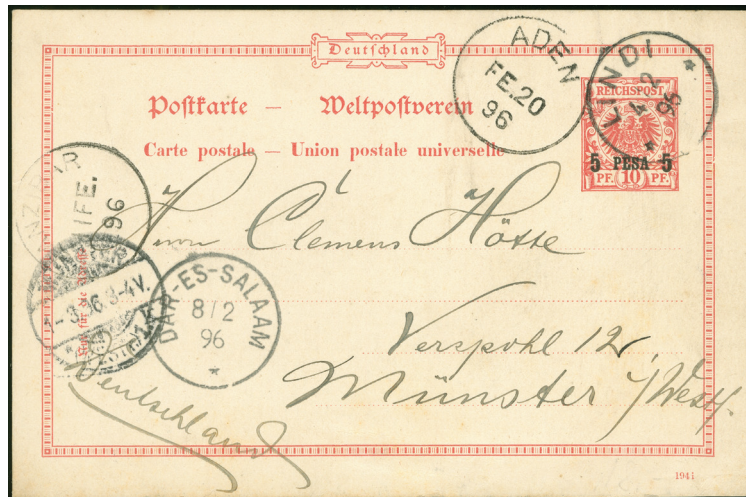 Deutschland
Postkarte – Weltpostverein
Carte postale – Union postale universelle
ADEN
FE.20
96
LINDI
4/2
96
REICHSPOST
5 PESA 5
PF. 10 PF.
FE.
96
DAR-ES-SALAAM
8/2
96
Herrn Clemens Hötte
Verspohl 12
Münster i/Westf.
Deutschland
1941